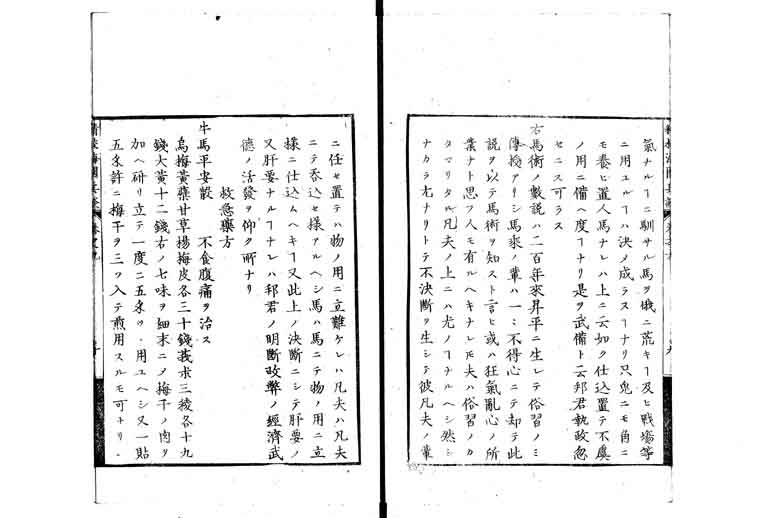 氣ナルヿニ馴サル馬ヲ俄ニ荒キヿ及ヒ戰塲等
ニ用ユルヿハ決メ成ラスヿナリ只兎ニモ角ニ
モ養ヒ置人馬ナレハ上ニ云如ク仕込置テ不虞
ノ用ニ備ヘ度ヿナリ是ヲ武備ト云邦君執政忽
セニス可ラス
右馬術ノ數説ハ二百年來昇平ニ生レテ俗習ノミ
傳授アリシ馬乘ノ輩ハ一ニ不得心ニテ却テ此
説ヲ以テ馬術ヲ知ヌト言ヒ或ハ狂氣亂心ノ所
業ナト思フ人モ有ルヘキナレ𪜈夫ハ俗習ノカ
タマリタル凡夫ノ上ニハ尤ノヿナルヘシ然シ
ナカラ尤ナリトテ不決斷ヲ生シテ彼凡夫ノ輩
ニ任セ置テハ物ノ用ニ立難ケレハ凡夫ハ凡夫
ニテ呑込セ樣アルヘシ馬ハ馬ニテ物ノ用ニ立
樣ニ仕込ムヘキヿ又此上ノ決斷ニシテ肝要ノ
又肝要ナルヿナレハ邦君ノ明斷改弊ノ經濟武
德ノ活發ヲ仰ク所ナリ
救急藥方
牛馬平安散 不食腹痛ヲ治ス
烏梅黃蘗甘草揚梅皮各三十錢莪朮三稜各十九
錢大黃十二錢右ノ七味ヲ細末ニメ梅干ノ肉ヲ
加ヘ研リ立テ一度ニ五匁ツヽ用ユヘシ又一貼
五匁許ニ梅干ヲ三ツ入テ煎用スルモ可ナリ